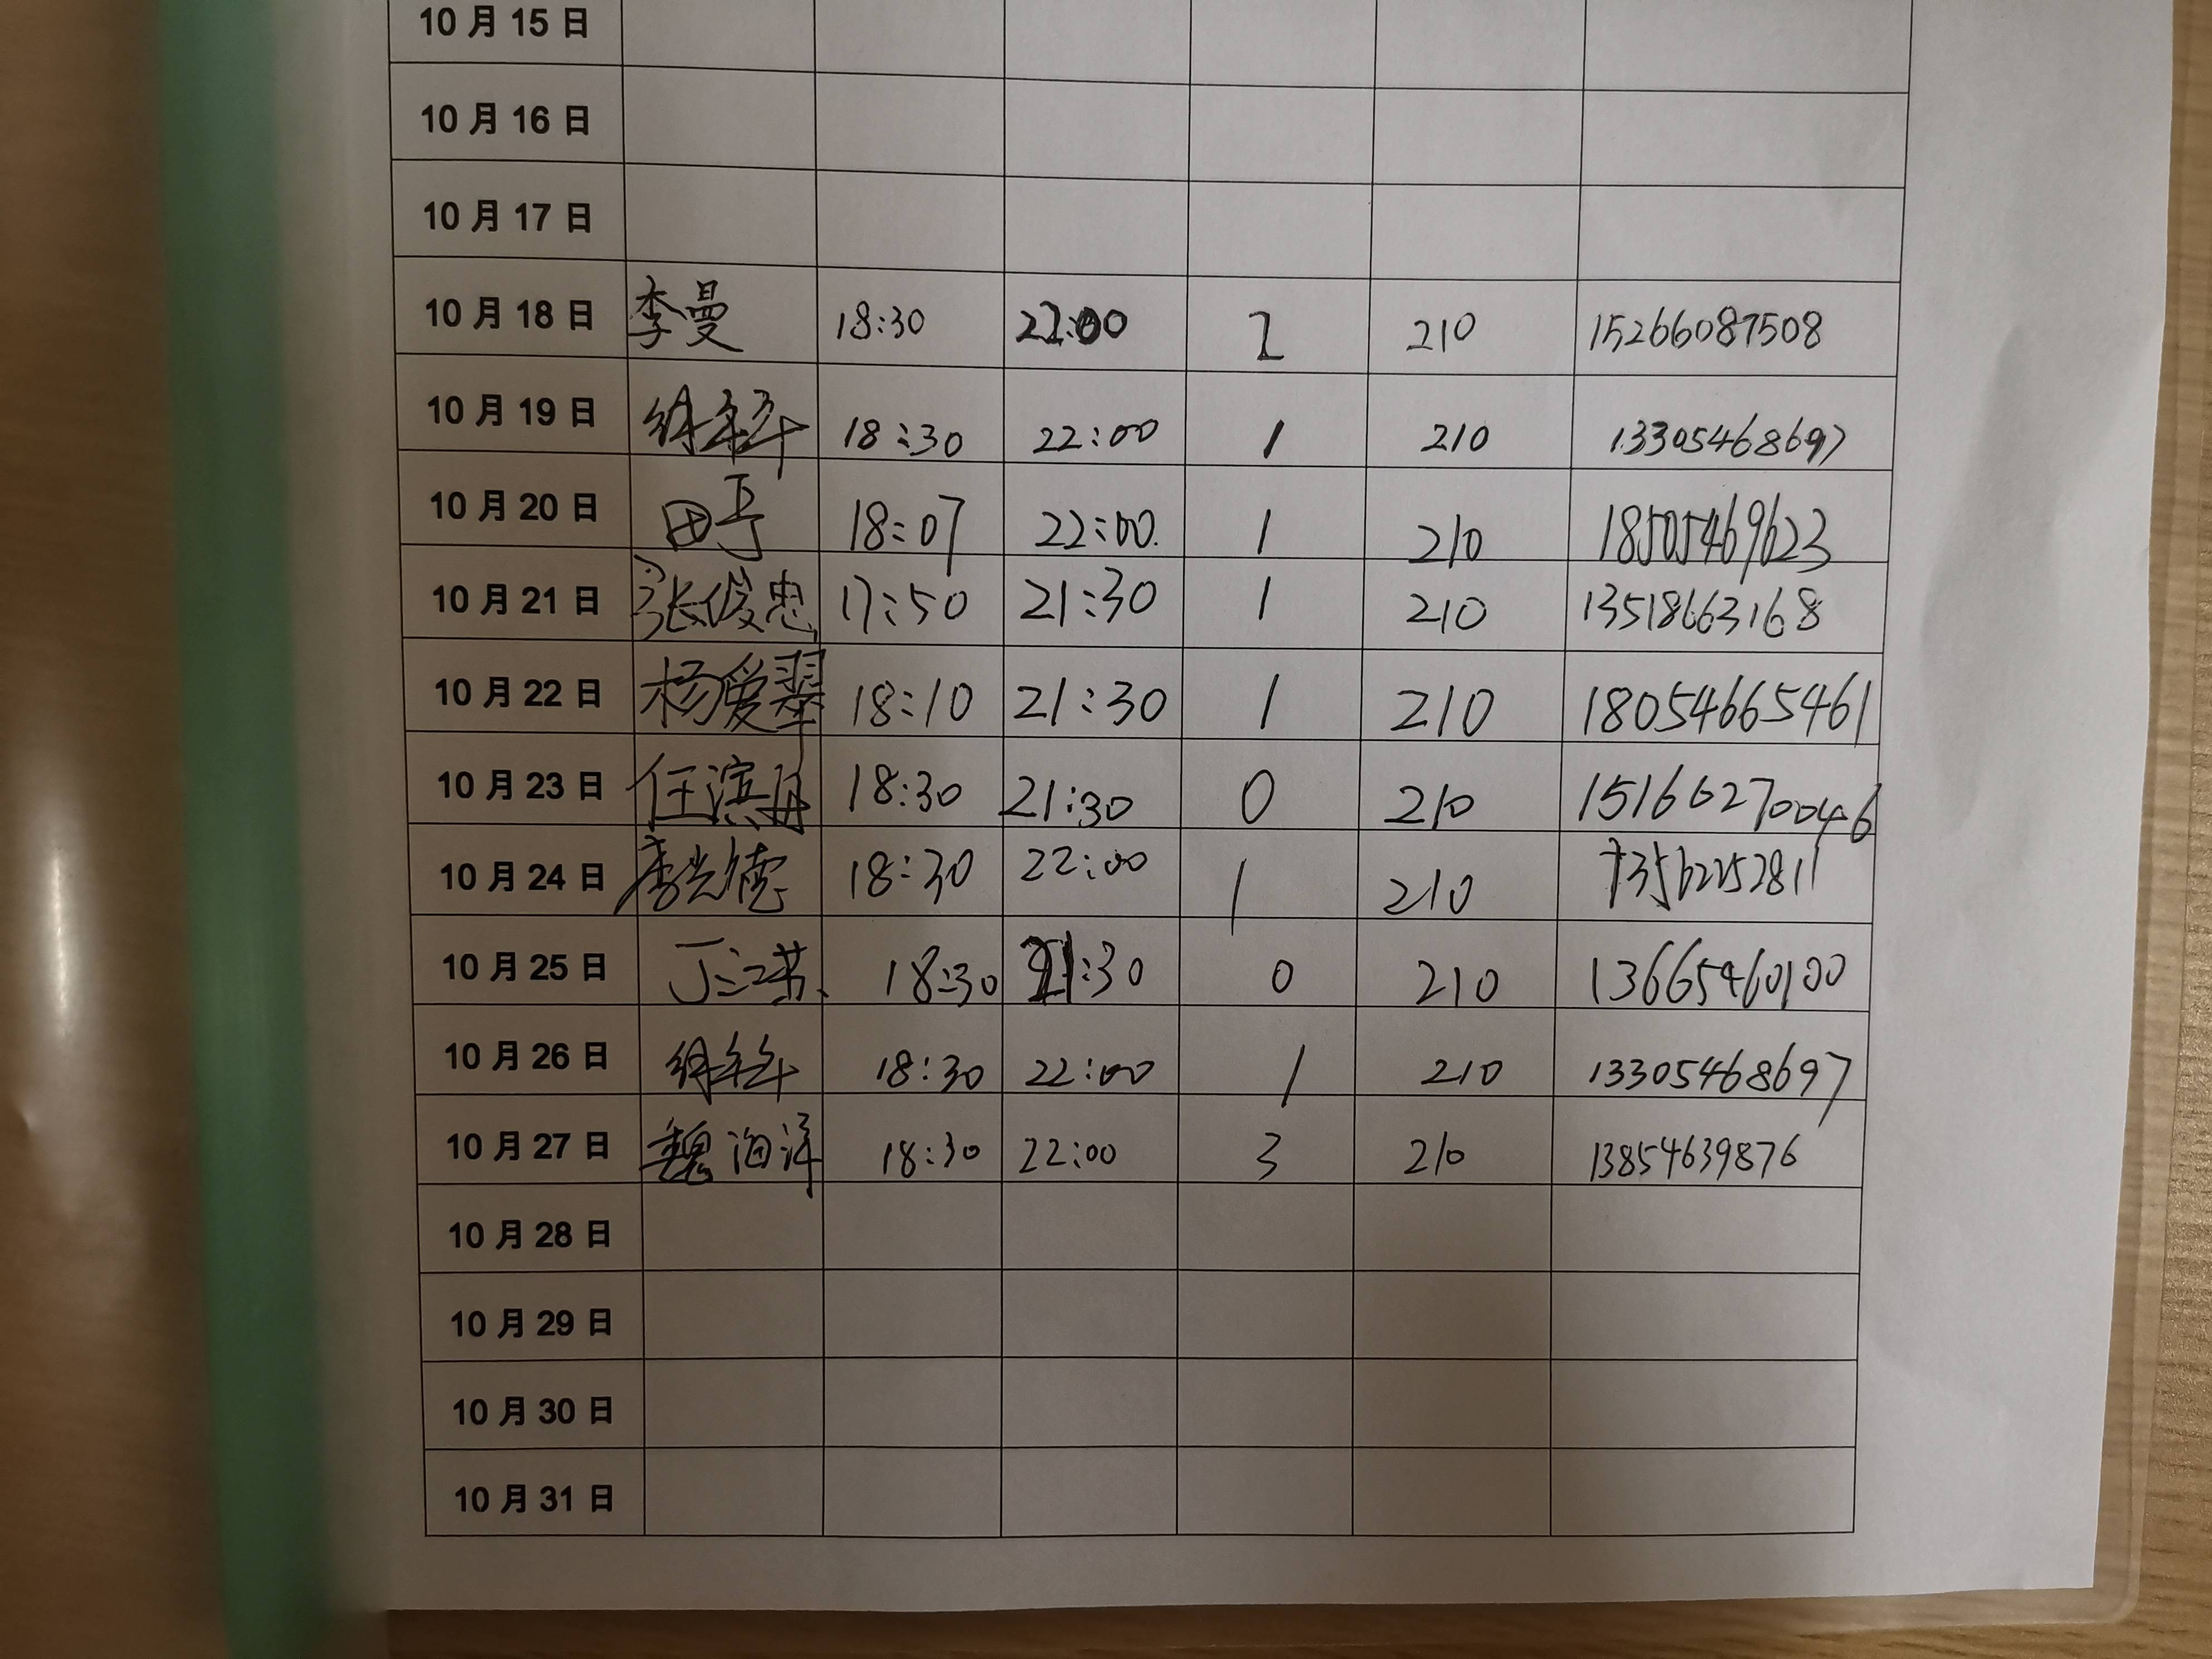 10 月 15 日
10 月 16 日
10 月 17 日
10 月 18 日 李曼 18:30 22:00 2 210 15266087508
10 月 19 日 18:30 22:00 1 210 13305468697
10 月 20 日 田 18:07 22:00. 1 210 18505469623
10 月 21 日 张俊忠 17:50 21:30 1 210 13518663168
10 月 22 日 杨爱翠 18:10 21:30 1 210 18054665461
10 月 23 日 任滨丹 18:30 21:30 0 210 15166270046
10 月 24 日 李光德 18:30 22:00 1 210 13562252811
10 月 25 日 丁江荣 18:30 21:30 0 210 13665460100
10 月 26 日 18:30 22:00 1 210 13305468697
10 月 27 日 魏海洋 18:30 22:00 3 210 13854639876
10 月 28 日
10 月 29 日
10 月 30 日
10 月 31 日